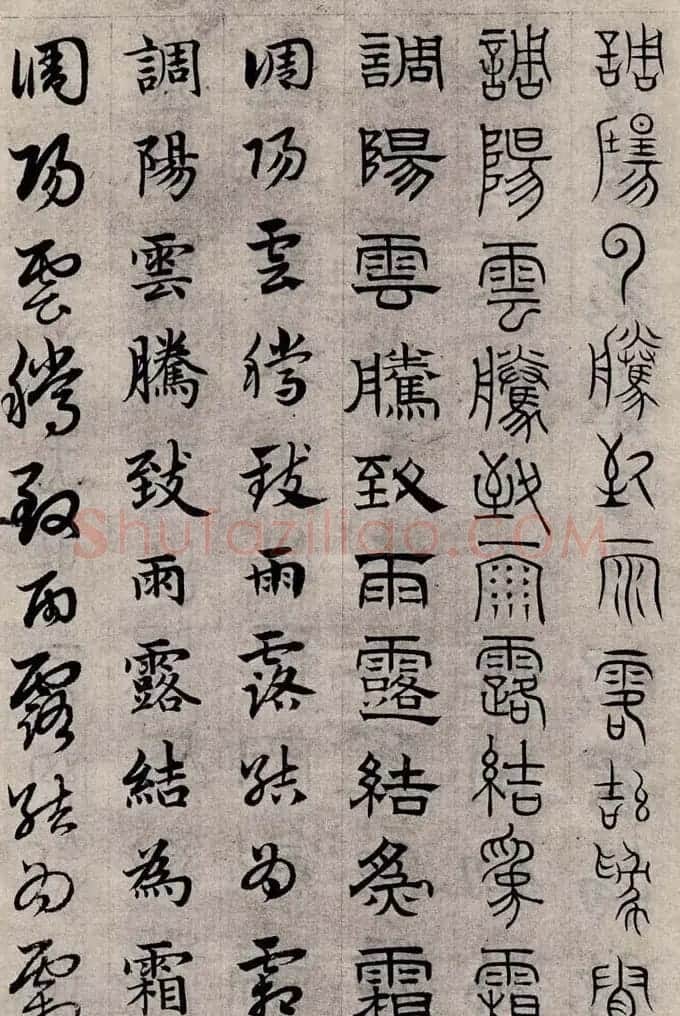 調陽雲騰致雨露結為霜
調陽雲騰致雨露結為霜
調陽雲騰致雨露結為霜
調陽雲騰致雨露結為霜
調陽雲騰致雨露結為霜
調陽雲騰致雨露結為霜
ShuFaziliao.COM